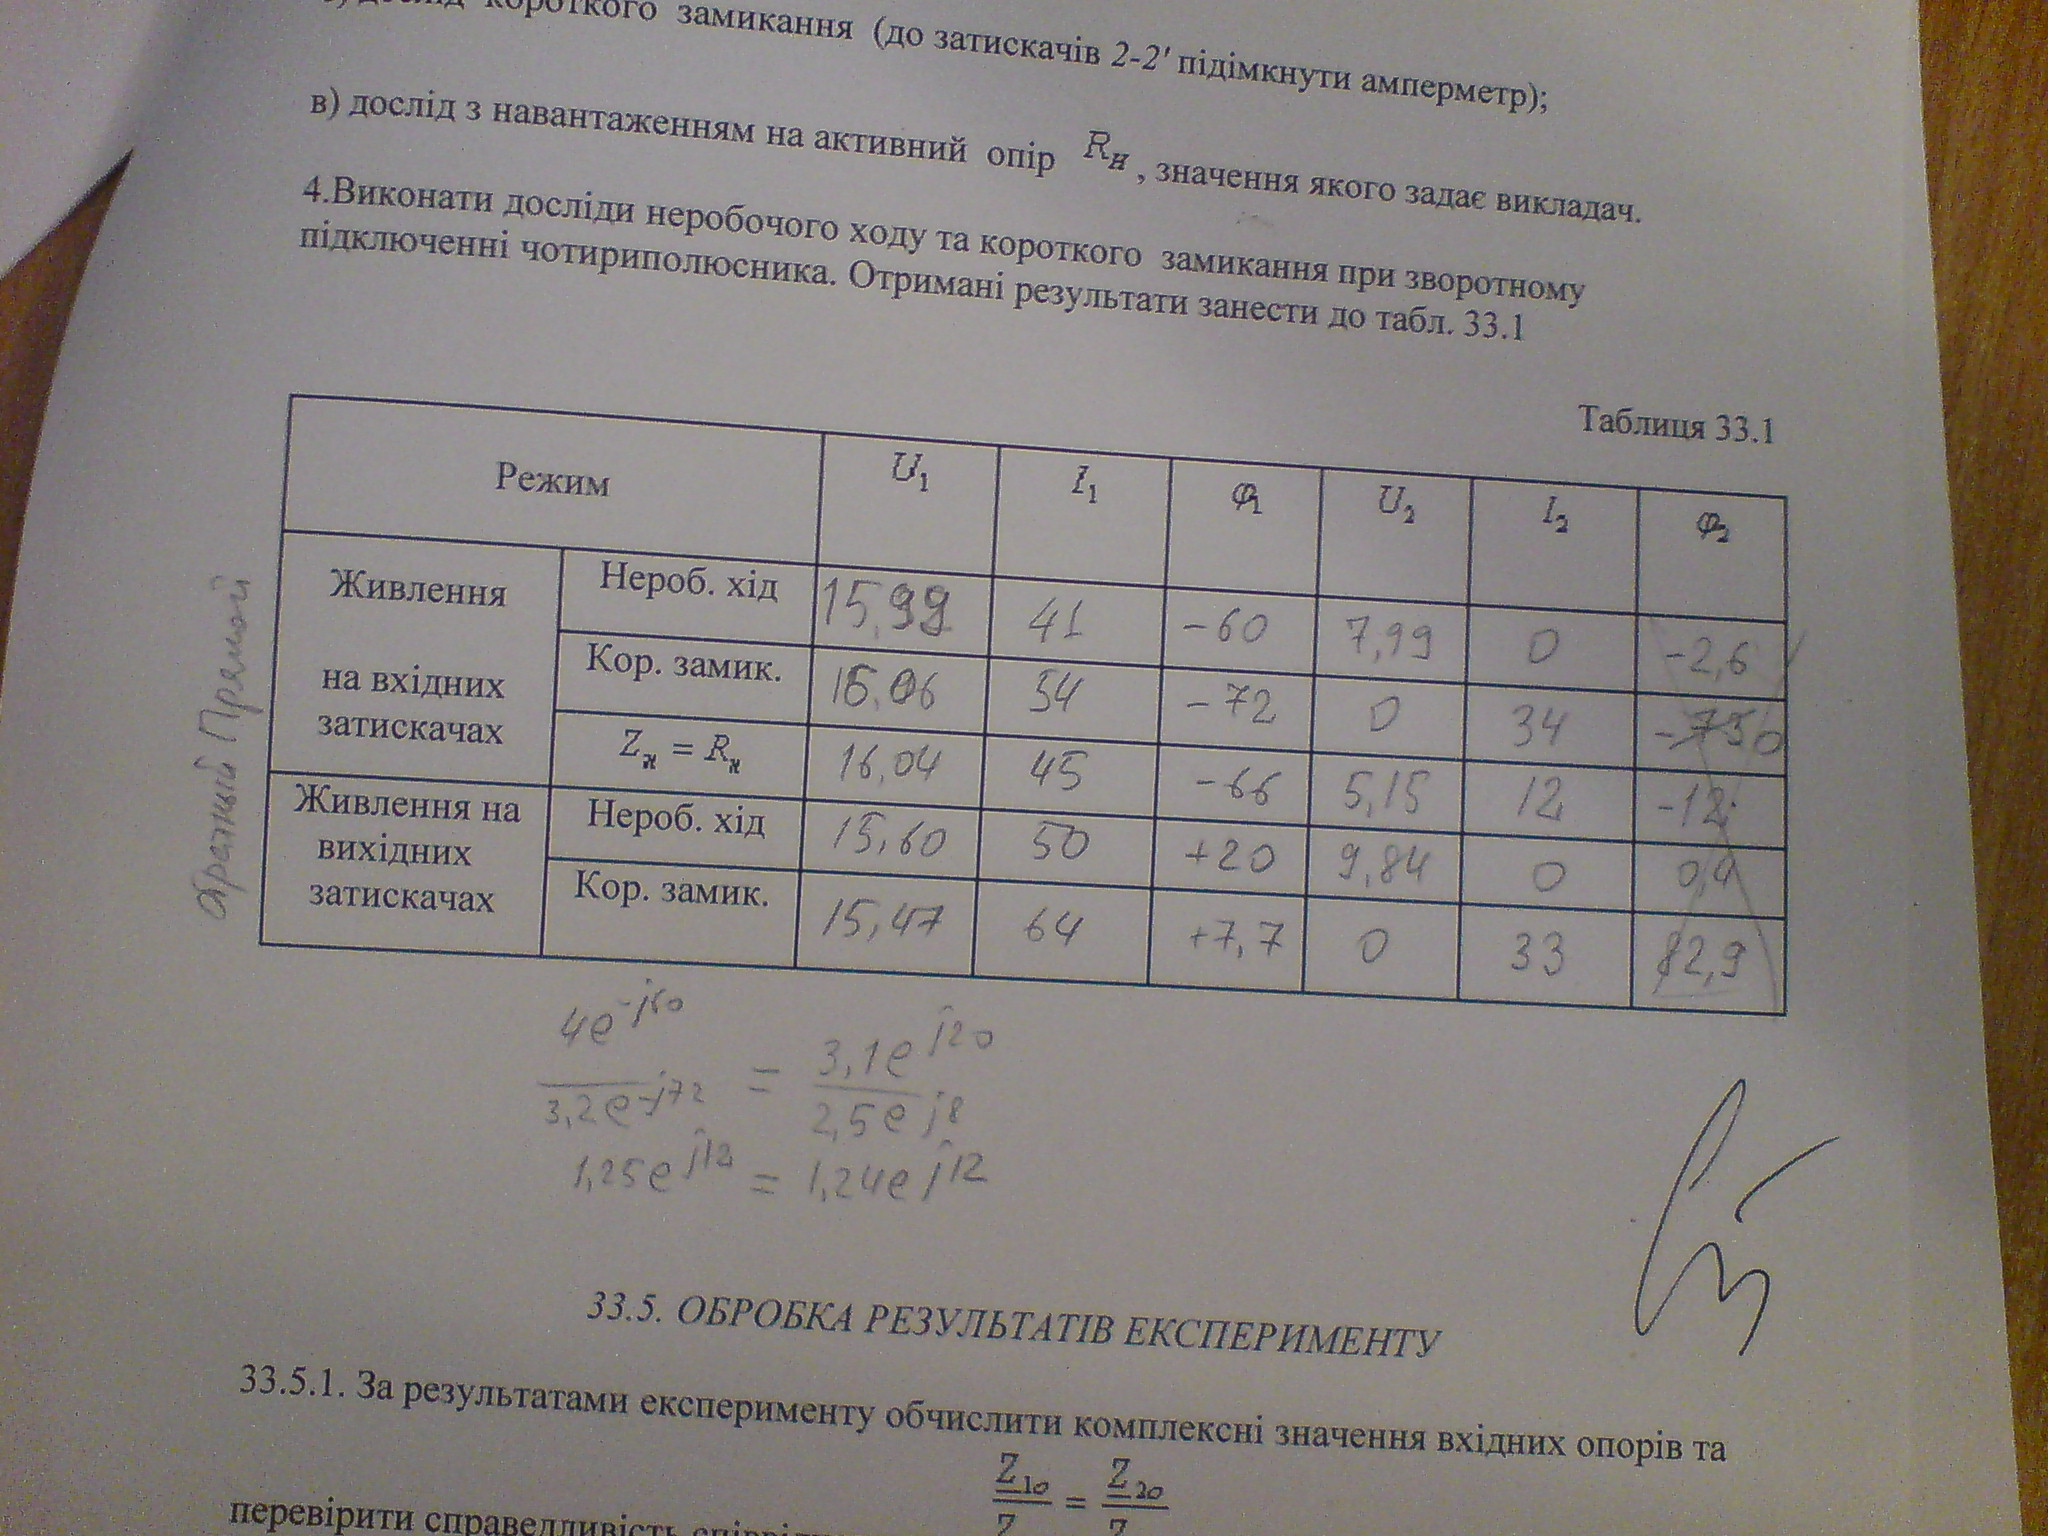 короткого замикання (до затискачів 2-2' підімкнути амперметр);
в) дослід з навантаженням на активний опір Rн, значення якого задає викладач.
4.Виконати досліди неробочого ходу та короткого замикання при зворотному
підключенні чотириполюсника. Отримані результати занести до табл. 33.1
Таблиця 33.1
Режим U₁ I₁ φ₁ U₂ I₂ φ₂
Живлення на вхідних затискачах
Нероб. хід 15,99 41 -60 7,99 0 -2,6
Кор. замик. 16,06 54 -72 0 34
Zн = Rн 16,04 45 -66 5,15 12 -12
Живлення на вихідних затискачах
Нероб. хід 15,60 50 +20 9,84 0 0,4
Кор. замик. 15,47 64 +7,7 0 33 82,9
Обратный Прямой
4e^-j60 / 3,2e^-j72 = 3,1e^j20 / 2,5e^j8
1,25e^j12 = 1,24e^j12
33.5. ОБРОБКА РЕЗУЛЬТАТІВ ЕКСПЕРИМЕНТУ
33.5.1. За результатами експерименту обчислити комплексні значення вхідних опорів та
перевірити справедливість Z₁₀ = Z₂₀